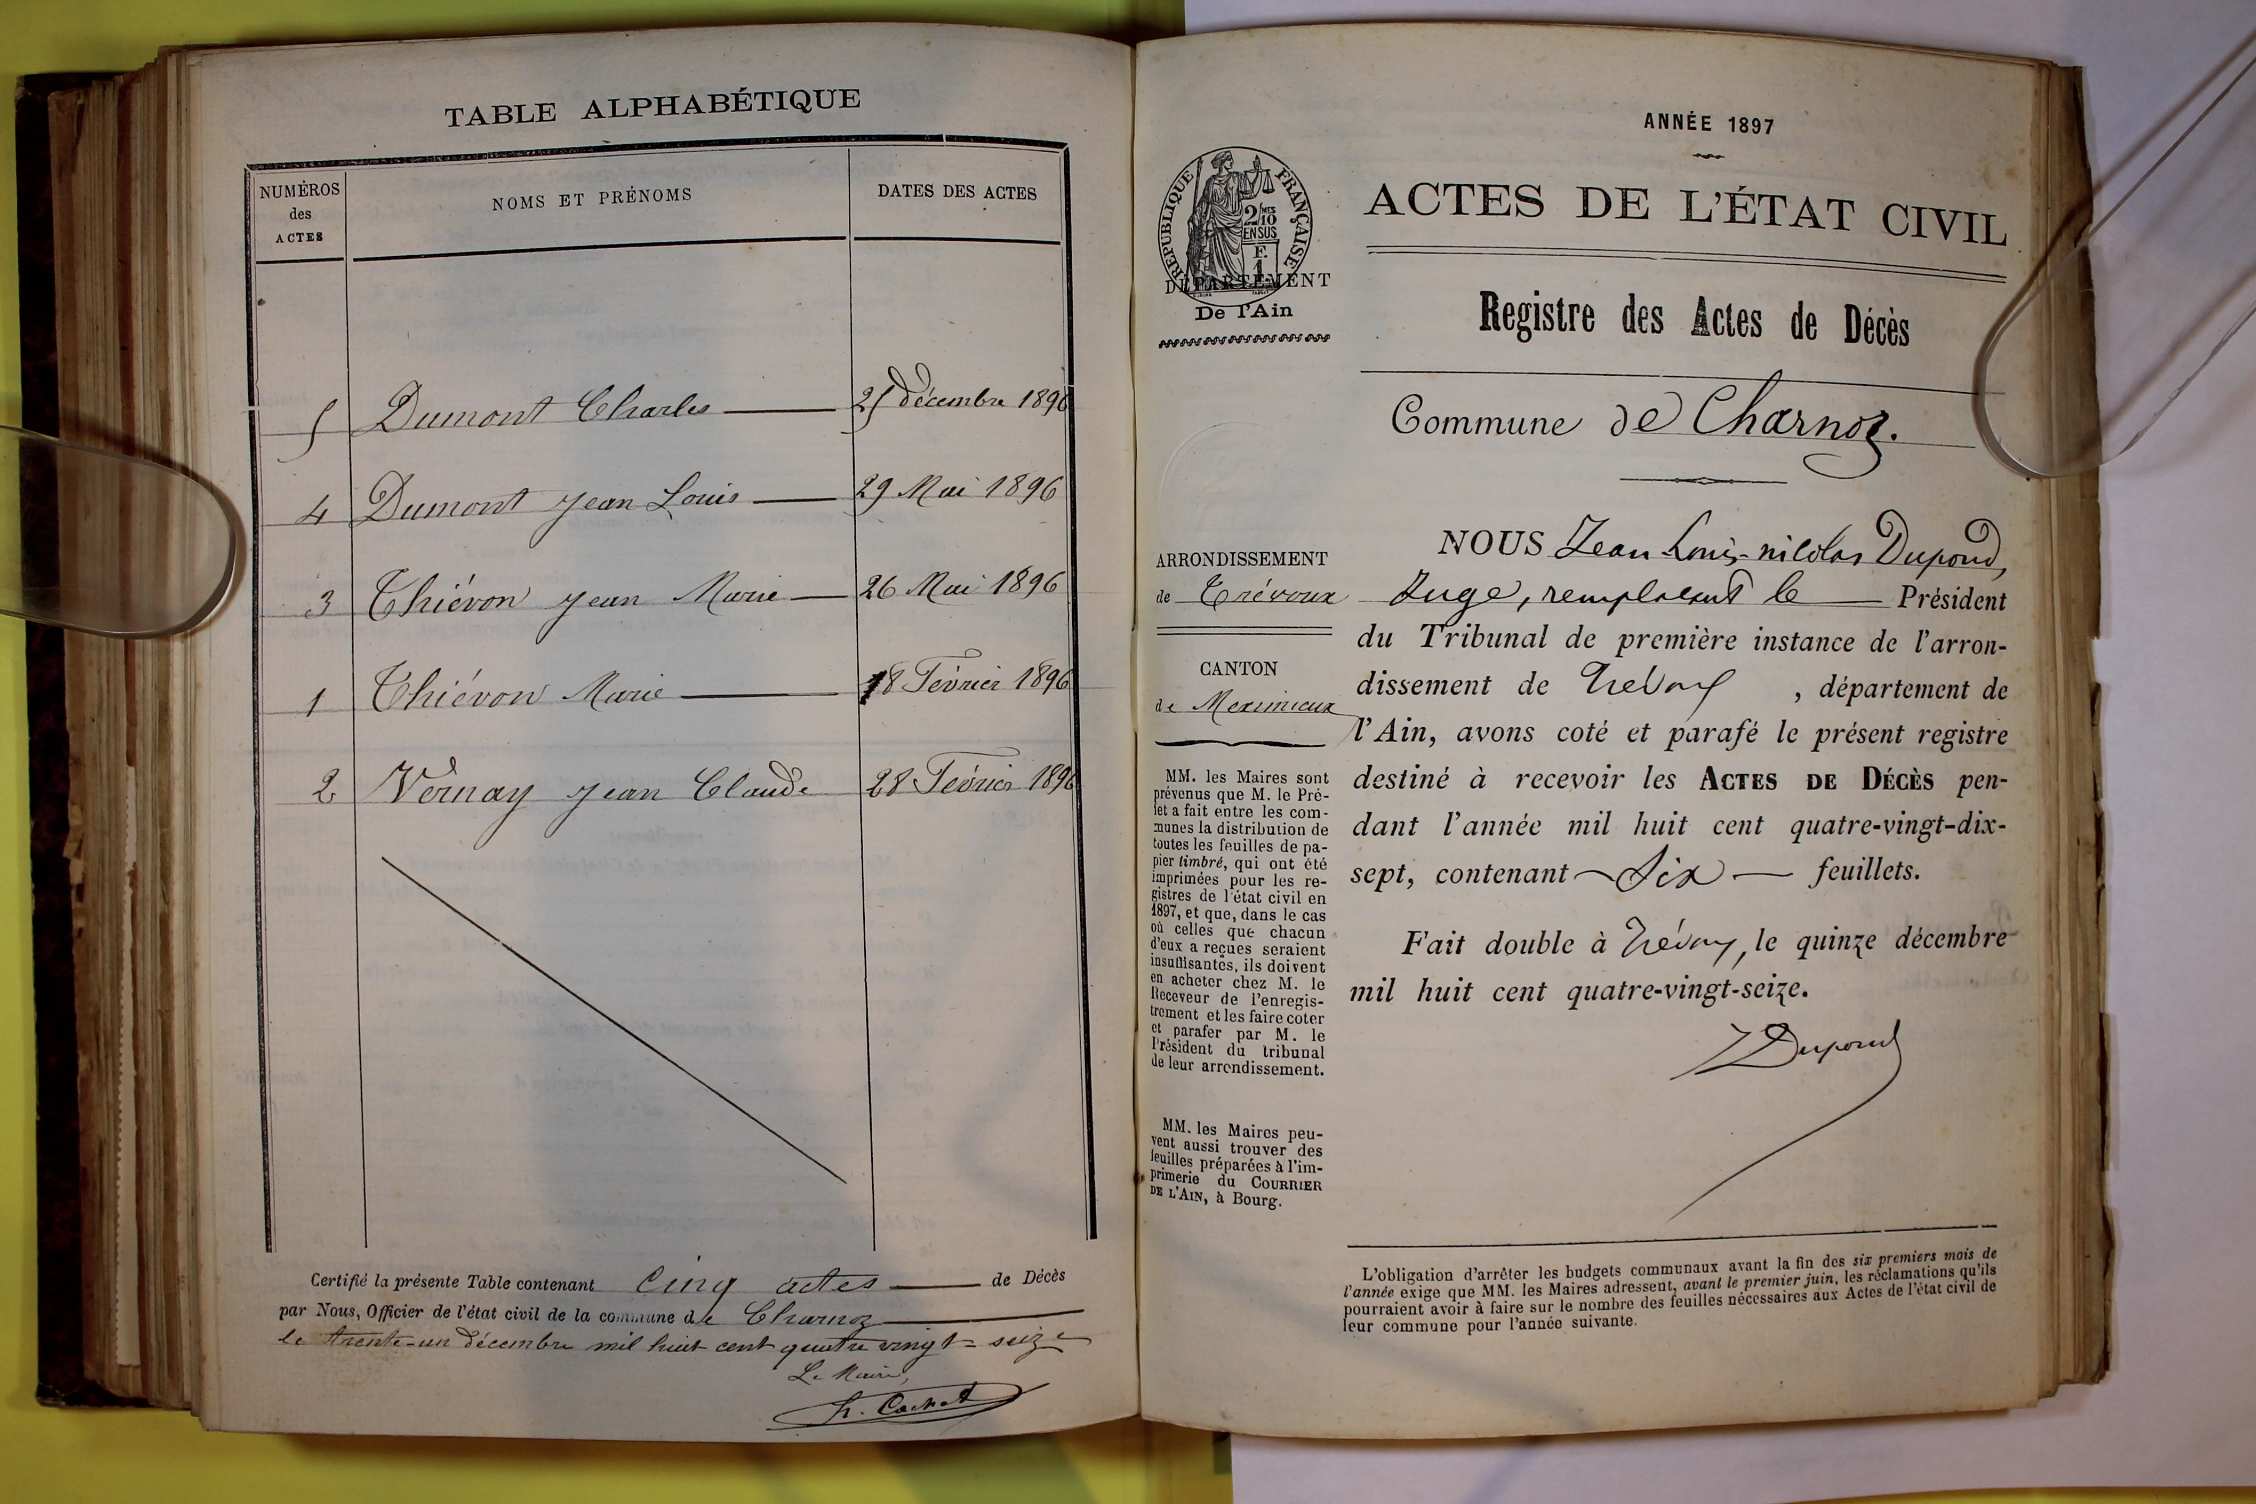 TABLE ALPHABÉTIQUE
NUMÉROS
des
ACTES
NOMS ET PRÉNOMS
DATES DES ACTES
5 Dumont Charles 25 décembre 1896
4 Dumont Jean Louis 29 Mai 1896
3 Thiévon Jean Marie 26 Mai 1896
1 Thiévon Marie 18 Février 1896
2 Vernay Jean Claude 28 Février 1896
Certifié la présente Table contenant Cinq actes de Décès
par Nous, Officier de l'état civil de la commune de Charnoz
le trente-un décembre mil huit cent quatre vingt-seize
Le Maire,
Cachet
ANNÉE 1897
RÉPUBLIQUE FRANÇAISE
2/10 MES
EN SUS
F.
1
DÉPARTEMENT
De l'Ain
ACTES DE L'ÉTAT CIVIL
Registre des Actes de Décès
Commune de Charnoz.
ARRONDISSEMENT
de Trévoux
CANTON
de Meximieux
MM. les Maires sont
prévenus que M. le Pré-
fet a fait entre les com-
munes la distribution de
toutes les feuilles de pa-
pier timbré, qui ont été
imprimées pour les re-
gistres de l'état civil en
1897, et que, dans le cas
où celles que chacun
d'eux a reçues seraient
insuffisantes, ils doivent
en acheter chez M. le
Receveur de l'enregis-
trement et les faire coter
et parafer par M. le
Président du tribunal
de leur arrondissement.
MM. les Maires peu-
vent aussi trouver des
feuilles préparées à l'im-
primerie du COURRIER
DE L'AIN, à Bourg.
NOUS Jean Louis-nicolas Dupond,
Juge, remplaçant le Président
du Tribunal de première instance de l'arron-
dissement de Trévoux, département de
l'Ain, avons coté et parafé le présent registre
destiné à recevoir les ACTES DE DÉCÈS pen-
dant l'année mil huit cent quatre-vingt-dix-
sept, contenant Six feuillets.
Fait double à Trévoux, le quinze décembre
mil huit cent quatre-vingt-seize.
Dupond
L'obligation d'arrêter les budgets communaux avant la fin des six premiers mois de
l'année exige que MM. les Maires adressent, avant le premier juin, les réclamations qu'ils
pourraient avoir à faire sur le nombre des feuilles nécessaires aux Actes de l'état civil de
leur commune pour l'année suivante.